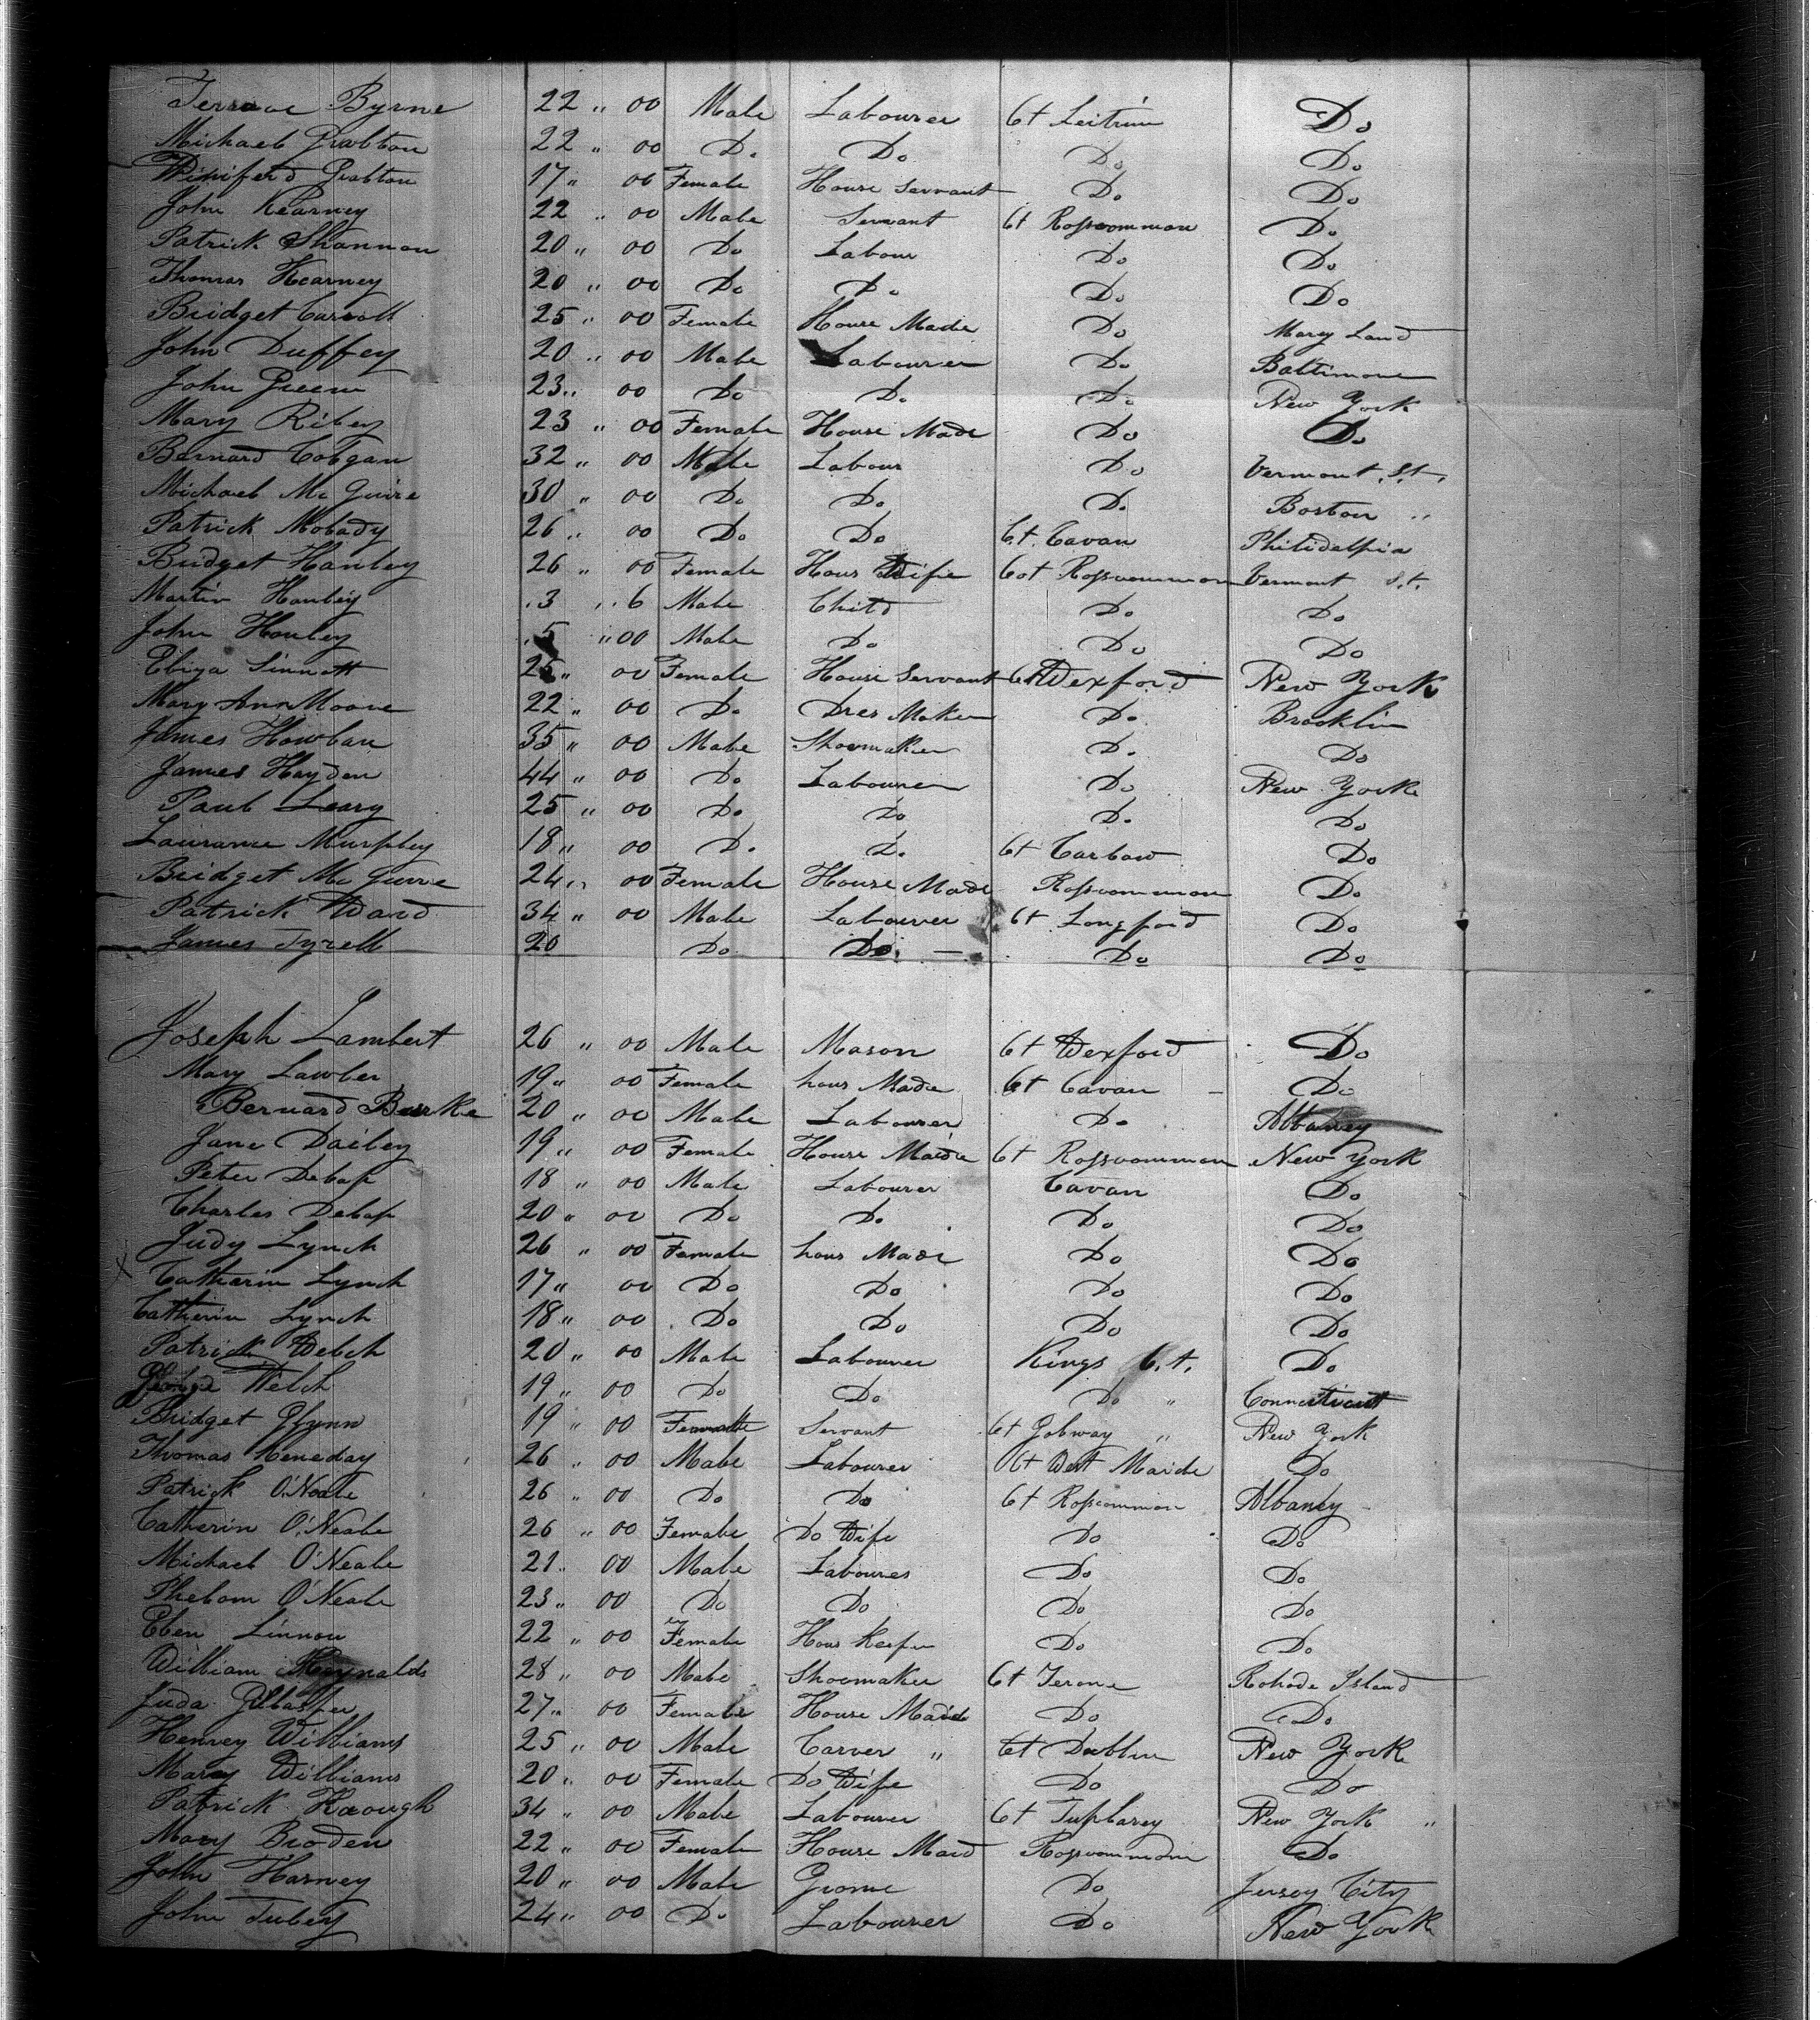 Terrance Byrne 22 " 00 Male Labourer Ct Leitrim Do
Michael Gralton 22 " 00 Do Do Do Do
Winiferd Gralton 17 " 00 Female House Servant Do Do
John Kearney 22 " 00 Male Servant Ct Rosscommon Do
Patrick Shannon 20 " 00 Do Labour Do Do
Thomas Kearney 20 " 00 Do Do Do Do
Bridget Carroll 25 " 00 Female House Made Do Mary Land
John Duffey 20 " 00 Male Labourer Do Baltimore
John Green 23 " 00 Do Do Do New York
Mary Riley 23 " 00 Female House Made Do Do
Bernard Colgan 32 " 00 Male Labour Do Vermont St.
Michael Mc Guire 30 " 00 Do Do Do Boston "
Patrick Molady 26 " 00 Do Do Ct. Cavan Philidelphia
Bridget Hanley 26 " 00 Female Hous Wife Cot Rosscommon Vermont St.
Martin Hanley 3 " 6 Male Child Do Do
John Hanley 5 " 00 Male Do Do Do
Eliza Sinnott 25 " 00 Female House Servant Ct Wexford New York
Mary Ann Moore 22 " 00 Do Dres Maker Do Brooklin
James Howlan 35 " 00 Male Shoemaker Do Do
James Hayden 44 " 00 Do Labourer Do New York
Paul Leary 25 " 00 Do Do Do Do
Laurance Murphey 18 " 00 Do Do Ct Carlow Do
Bridget Mc Guire 24 " 00 Female House Made Rosscommon Do
Patrick Ward 34 " 00 Male Labourer Ct Longford Do
James Tyrell 20 Do Do Do Do
Joseph Lambert 26 " 00 Male Mason Ct Wexford Do
Mary Lawler 19 " 00 Female hous Made Ct Cavan Do
Bernard Burke 20 " 00 Male Labourer Do Albaney
Jane Dailey 19 " 00 Female House Maide Ct Rosscommon New York
Peter 18 " 00 Male Labourer Cavan Do
Charles 20 " 00 Do Do Do Do
Judy Lynch 26 " 00 Female hous Made Do Do
X Catherin Lynch 17 " 00 Do Do Do Do
Catherin Lynch 18 " 00 Do Do Do Do
Patrick Welch 20 " 00 Male Labourer Kings C.t. Do
George Welch 19 " 00 Do Do Do " Connecticutt
Bridget Glynn 19 " 00 Female Servant Ct Golway " New York
Thomas Keneday 26 " 00 Male Labourer Ct West Maide Do
Patrick O'Neale 26 " 00 Do Do Ct Rosscommon Albaney
Catherin O'Neale 26 " 00 Female Do Wife Do Do
Michael O'Neale 21 " 00 Male Laboures Do Do
Phelom O'Neale 23 " 00 Do Do Do Do
Elen Linnon 22 " 00 Female Hous Keeper Do Do
William Reynalds 28 " 00 Male Shoemaker Ct Terone Rohode Island
Juda 27 " 00 Female House Maide Do Do
Henrey Williams 25 " 00 Male Carver " Ct Dublin New York
Mary Williams 20 " 00 Female Do Wife Do Do
Patrick Keough 34 " 00 Male Labourer Ct Tuplarey New York "
Mary Broden 22 " 00 Female House Maid Rosscommon Do
John Harney 20 " 00 Male Grome Do Jersey City
John Tuley 24 " 00 Do Labourer Do New York